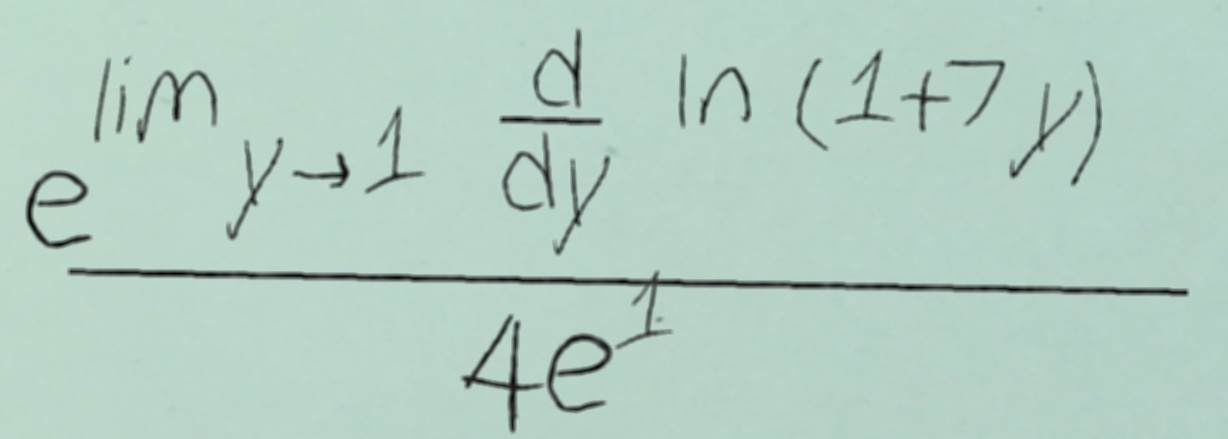 \frac{e^{\lim_{y \to 1} \frac{d}{dy} \ln(1+7y)}}{4e^{1}}